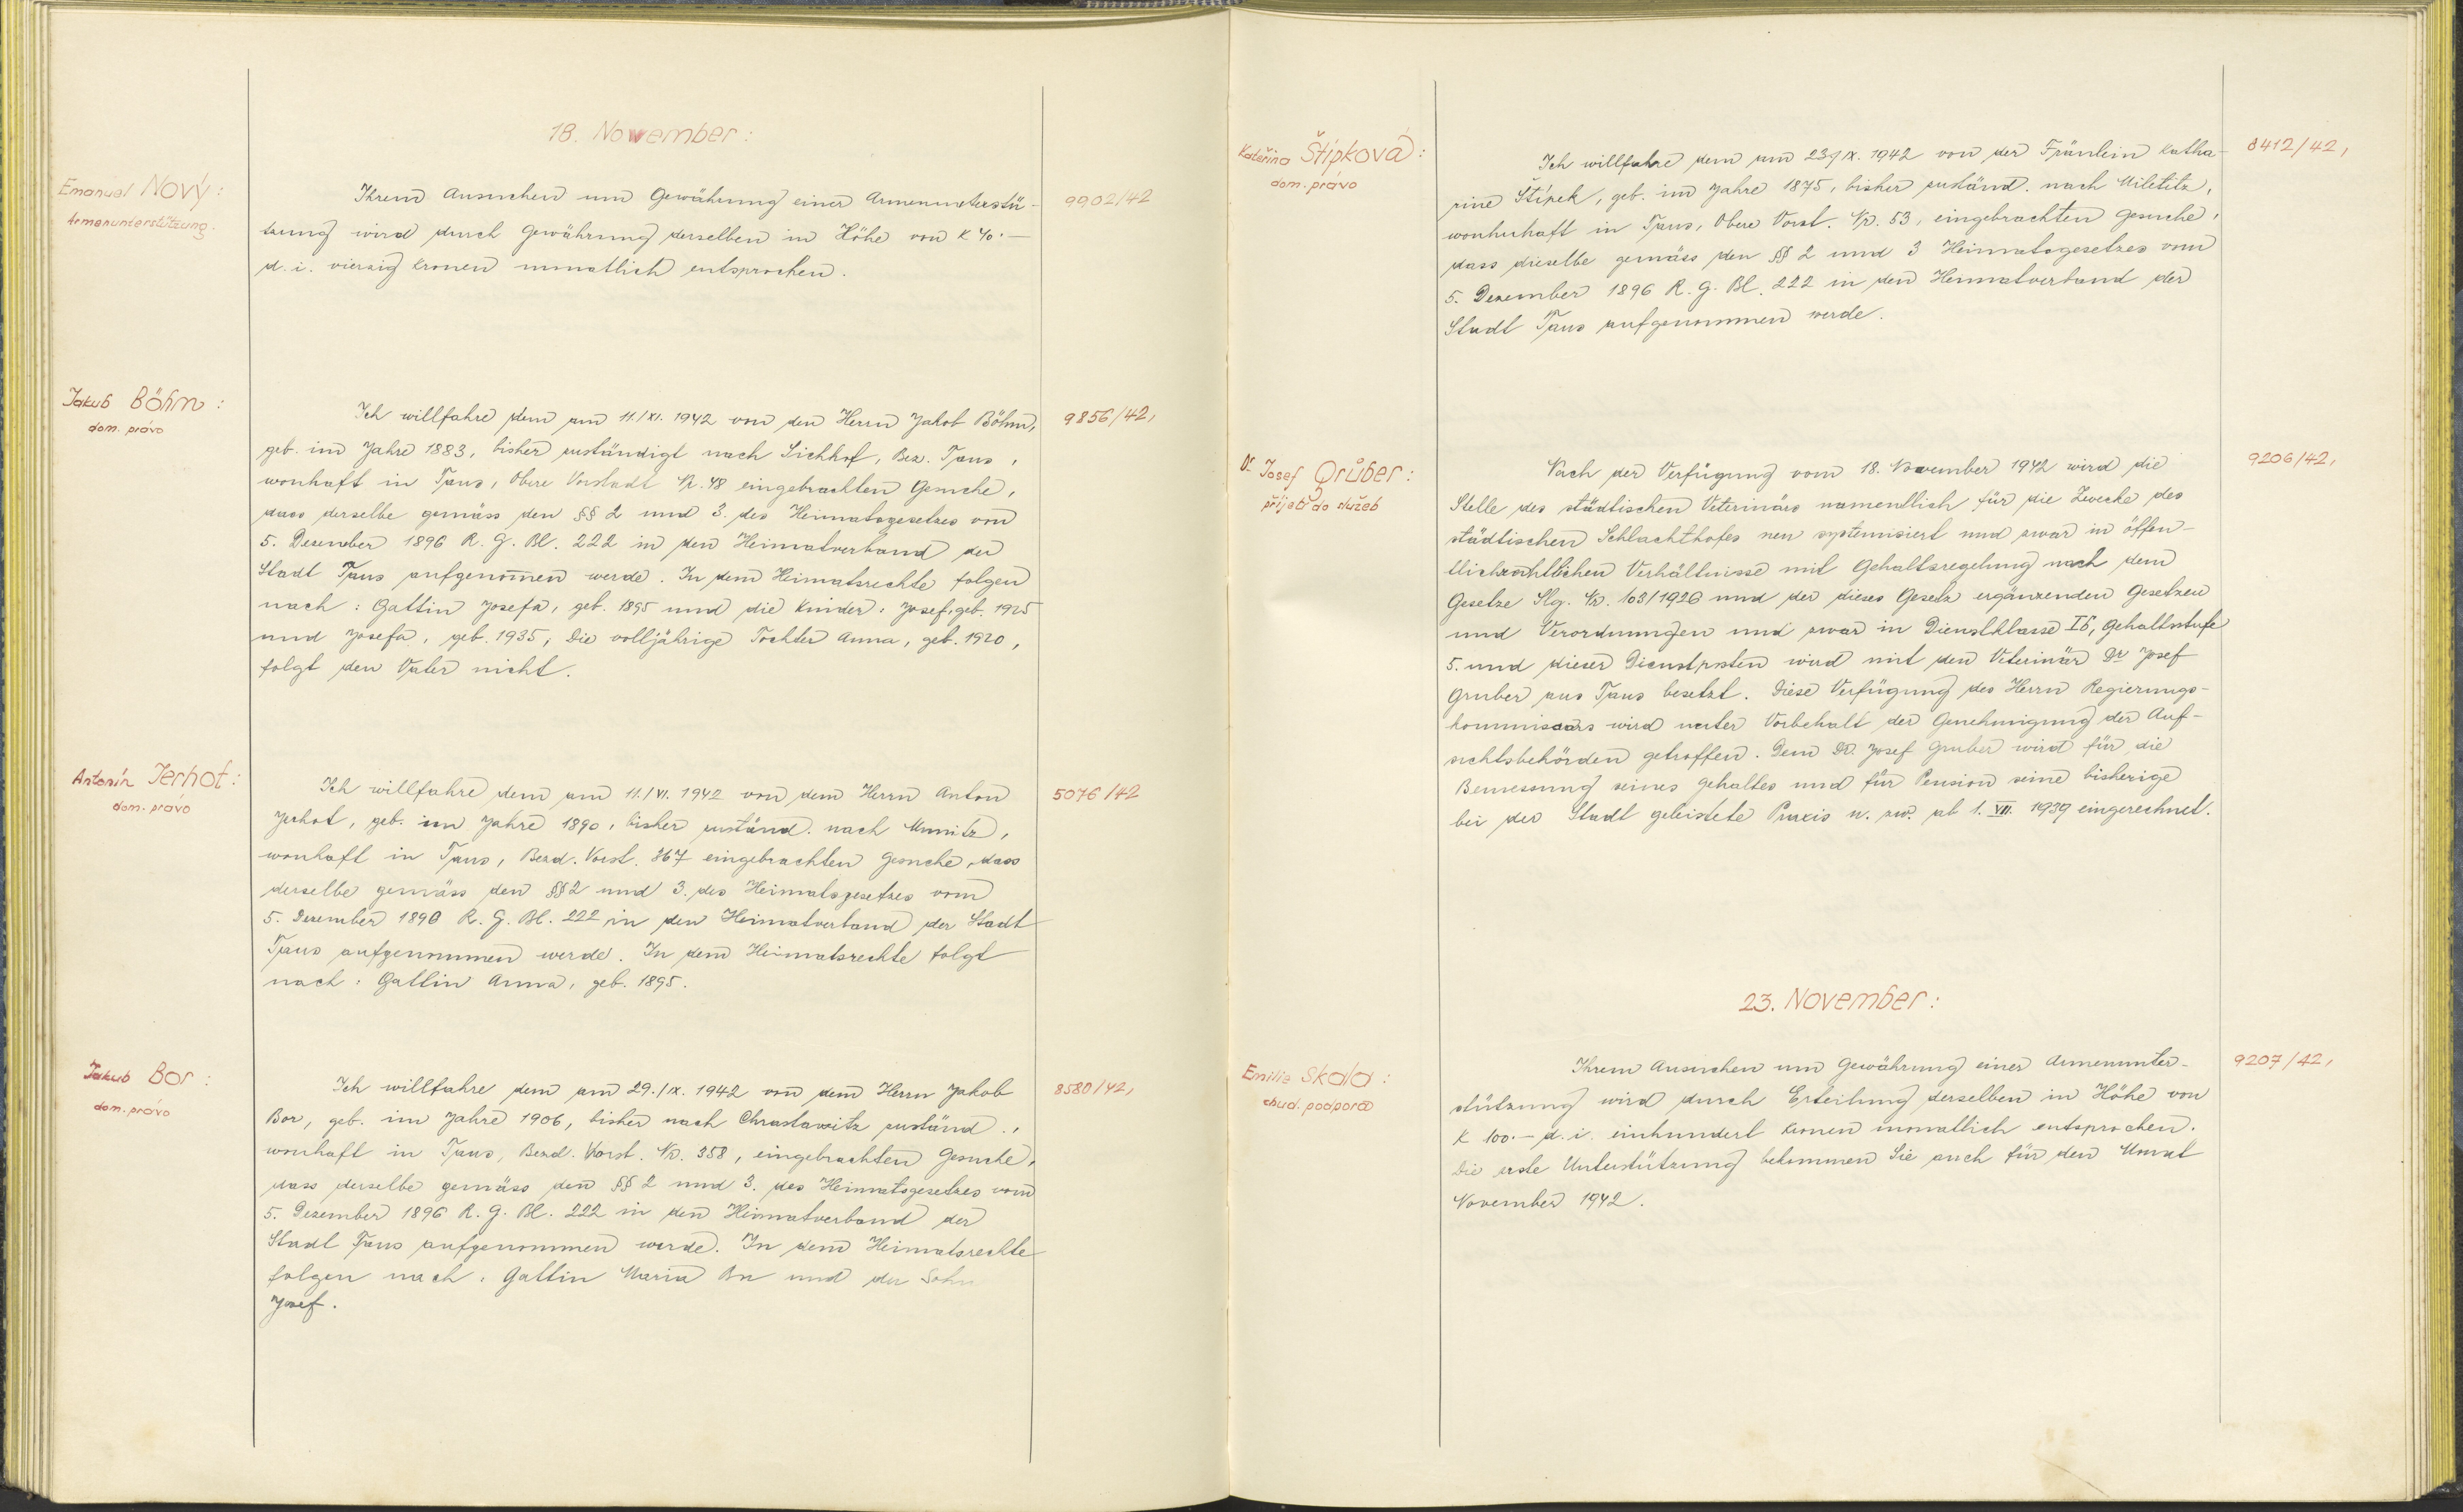 18. November:
Emanuel Nový:
Armenunterstützung.
Ihrem Ansuchen um Gewährung einer Armenunterstü-
tzung wird durch Gewährung derselben in Höhe von K 40.—
d. i. vierzig Kronen monatlich entsprochen.
9902/42
Jakub Böhm:
dom. právo
Ich willfahre dem am 11./XI. 1942 von den Herrn Jakob Böhm,
geb. im Jahre 1883, bisher zuständigt nach Sichhof, Bez. Taus,
wonhaft in Taus, Obere Vorstadt Nr. 48 eingebrachten Gesuche,
dass derselbe gemäss den §§ 2 und 3. des Heimatsgesetzes von
5. Dezember 1896 R. G. Bl. 222 in den Heimatverband der
Stadt Taus aufgenom̅en werde. In dem Heimatsrechte folgen
nach: Gattin Josefa, geb. 1895 und die Kinder: Josef, geb. 1925
und Josefa, geb. 1935, Die volljährige Tochter Anna, geb. 1920,
folgt den Vater nicht.
9856/42,
Antonín Jerhot:
dom. právo
Ich willfahre dem am 11./VI. 1942 von dem Herrn Anton
Jerhot, geb. im Jahre 1890, bisher zuständ. nach Mnnitz,
wonhaft in Taus, Bezd. Vorst. 367 eingebrachten Gesuche, dass
derselbe gemäss den §§ 2 und 3. des Heimatsgesetzes vom
5. Dezember 1896 R. G. Bl. 222 in den Heimatverband der Stadt
Taus aufgenommen werde. In dem Heimatsrechte folgt
nach: Gattin Anna, geb. 1895.
5076/42
Jakub Bor:
dom. právo
Ich willfahre dem am 29./IX. 1942 von dem Herrn Jakob
Bor, geb. im Jahre 1906, bisher nach Chrastawitz zuständ.,
wonhaft in Taus, Bezd. Vorst. Nr. 358, eingebrachten Gesuche,
dass derselbe gemäss den §§ 2 und 3. des Heimatsgesetzes vom
5. Dezember 1896 R. G. Bl. 222 in den Heimatverband der
Stadt Taus aufgenommen werde. In dem Heimatsrechte
folgen nach: Gattin Maria Bor und der Sohn
Josef.
8580/42,
Kateřina Štípková:
dom. právo
Ich willfahre dem am 23./IX. 1942 von der Fräulein Katha-
rine Štípek, geb. im Jahre 1875, bisher zuständ. nach Miletitz,
wonhuhaft in Taus, Obere Vorst. Nr. 53, eingebrachten Gesuche,
dass dieselbe gemäss den §§ 2 und 3 Heimatsgesetzes vom
5. Dezember 1896 R. G. Bl. 222 in den Heimatverband der
Stadt Taus aufgenommen werde.
8412/42,
Dr. Josef Grüber:
přijetí do služeb
Nach der Verfügung vom 18. November 1942 wird die
Stelle des städtischen Veterinärs namentlich für die Zwecke des
städtischen Schlachthofes neu systemisiert und zwar in öffen-
tlichrechtlichen Verhältnisse mit Gehaltsregelung nach dem
Gesetze Slg. Nr. 103/1926 und der dieses Gesetz ergänzenden Gesetzen
und Verordnungen und zwar in Dienstklasse Ib, Gehaltstufe
5. und dieser Dienstposten wird mit den Veterinär Dr Josef
Gruber aus Taus besetzt. Diese Verfügung des Herrn Regierungs-
kommissars wird unter Vorbehalt der Genehmigung der Auf-
sichtsbehörden getroffen. Dem Dr. Josef Gruber wird für die
Bemessung seines Gehaltes und für Pension seine bisherige
bei der Stadt geleistete Praxis u. zw. ab 1. VII. 1939 eingerechnet.
9206/42,
23. November:
Emilie Skala:
chud. podpora
Ihrem Ansuchen um Gewährung einer Armenunter-
stützung wird durch Erteilung derselben in Höhe von
K 100.— d. i. einhundert Kronen monatlich entsprochen.
Die erste Unterstützung bekommen Sie auch für den Monat
November 1942.
9207/42,